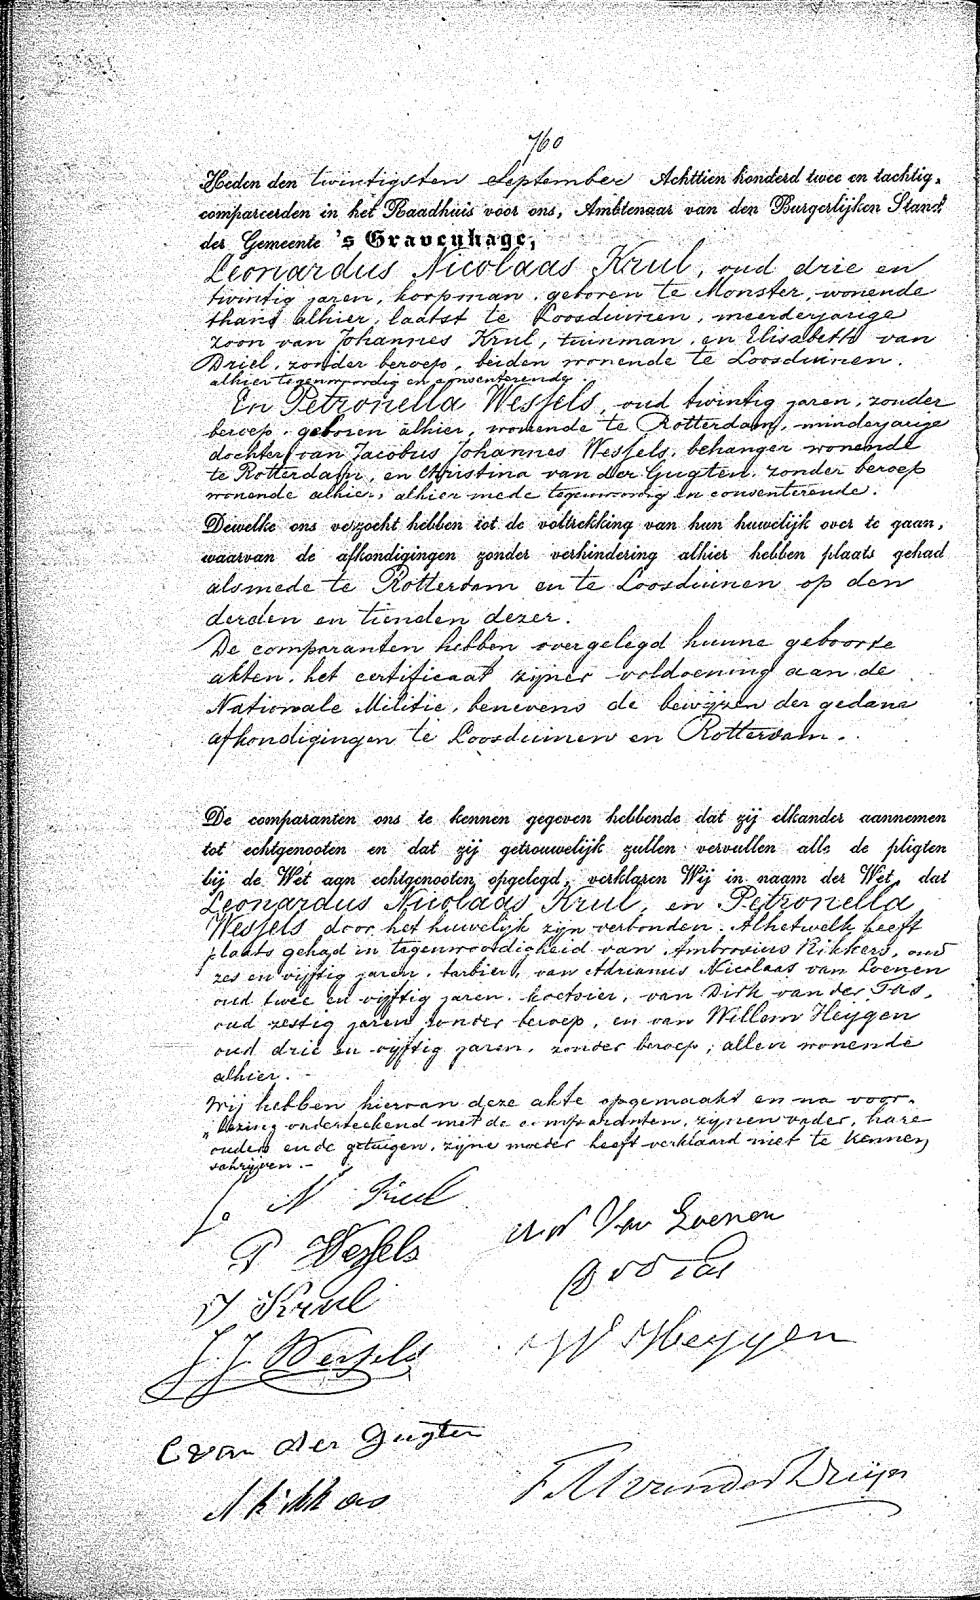 760
Heden den twintigsten September Achttien honderd twee en tachtig,
compareerden in het Raadhuis voor ons, Ambtenaar van den Burgerlijken Stand
der Gemeente 's Gravenhage,
Leonardus Nicolaas Krul, oud drie en
twintig jaren, koopman, geboren te Monster, wonende
thans alhier, laatst te Loosduinen, meerderjarige
zoon van Johannes Krul, tuinman, en Elisabeth van
Driel, zonder beroep, beiden wonende te Loosduinen.
alhier tegenwoordig en consenterende.
En Petronella Wessels, oud twintig jaren, zonder
beroep, geboren alhier, wonende te Rotterdam, minderjarige
dochter van Jacobus Johannes Wessels, behanger wonende
te Rotterdam, en Christina van der Gugten, zonder beroep
wonende alhier, alhier mede tegenwoordig en consenterende.
Dewelke ons verzocht hebben tot de voltrekking van hun huwelijk over te gaan,
waarvan de afkondigingen zonder verhindering alhier hebben plaats gehad
alsmede te Rotterdam en te Loosduinen op den
derden en tienden dezer.
De comparanten hebben overgelegd hunne geboorte
akten, het certificaat zijner voldoening aan de
Nationale Militie, benevens de bewijzen der gedane
afkondigingen te Loosduinen en Rotterdam.
De comparanten ons te kennen gegeven hebbende dat zij elkander aannemen
tot echtgenooten en dat zij getrouwelijk zullen vervullen alle de pligten
bij de Wet aan echtgenooten opgelegd, verklaren Wij in naam der Wet, dat
Leonardus Nicolaas Krul, en Petronella
Wessels door het huwelijk zijn verbonden. Alhetwelk heeft
plaats gehad in tegenwoordigheid van Ambrosius Rikkers, oud
zes en vijftig jaren, barbier, van Adrianus Nicolaas van Loenen
oud twee en vijftig jaren, koetsier, van Dirk van der Tas,
oud zestig jaren zonder beroep, en van Willem Heijgen
oud drie en vijftig jaren, zonder beroep; allen wonende
alhier.
Wij hebben hiervan deze akte opgemaakt en na voor-
lezing onderteekend met de comparanten, zijnen vader, hare
ouders en de getuigen, zijne moeder heeft verklaard niet te kennen
schrijven.
L. N Krul
P Wessels
J Krul
J. J. Wessels
C van der Gugten
A Rikkers
A N Van Loenen
D v d Tas
W Heijgen